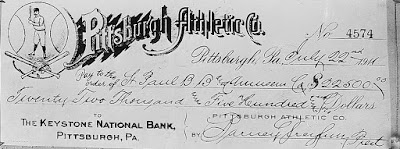 Pittsburgh Athletic Co.
No 4574
Pittsburgh, Pa. July 22nd 1911
Pay to the
order of St Paul B. B. & Amusem Co $22500.00
Twenty Two Thousand & Five Hundred Dollars
TO PITTSBURGH ATHLETIC CO.
THE KEYSTONE NATIONAL BANK,
PITTSBURGH, PA. BY Barney Dreyfuss Prest